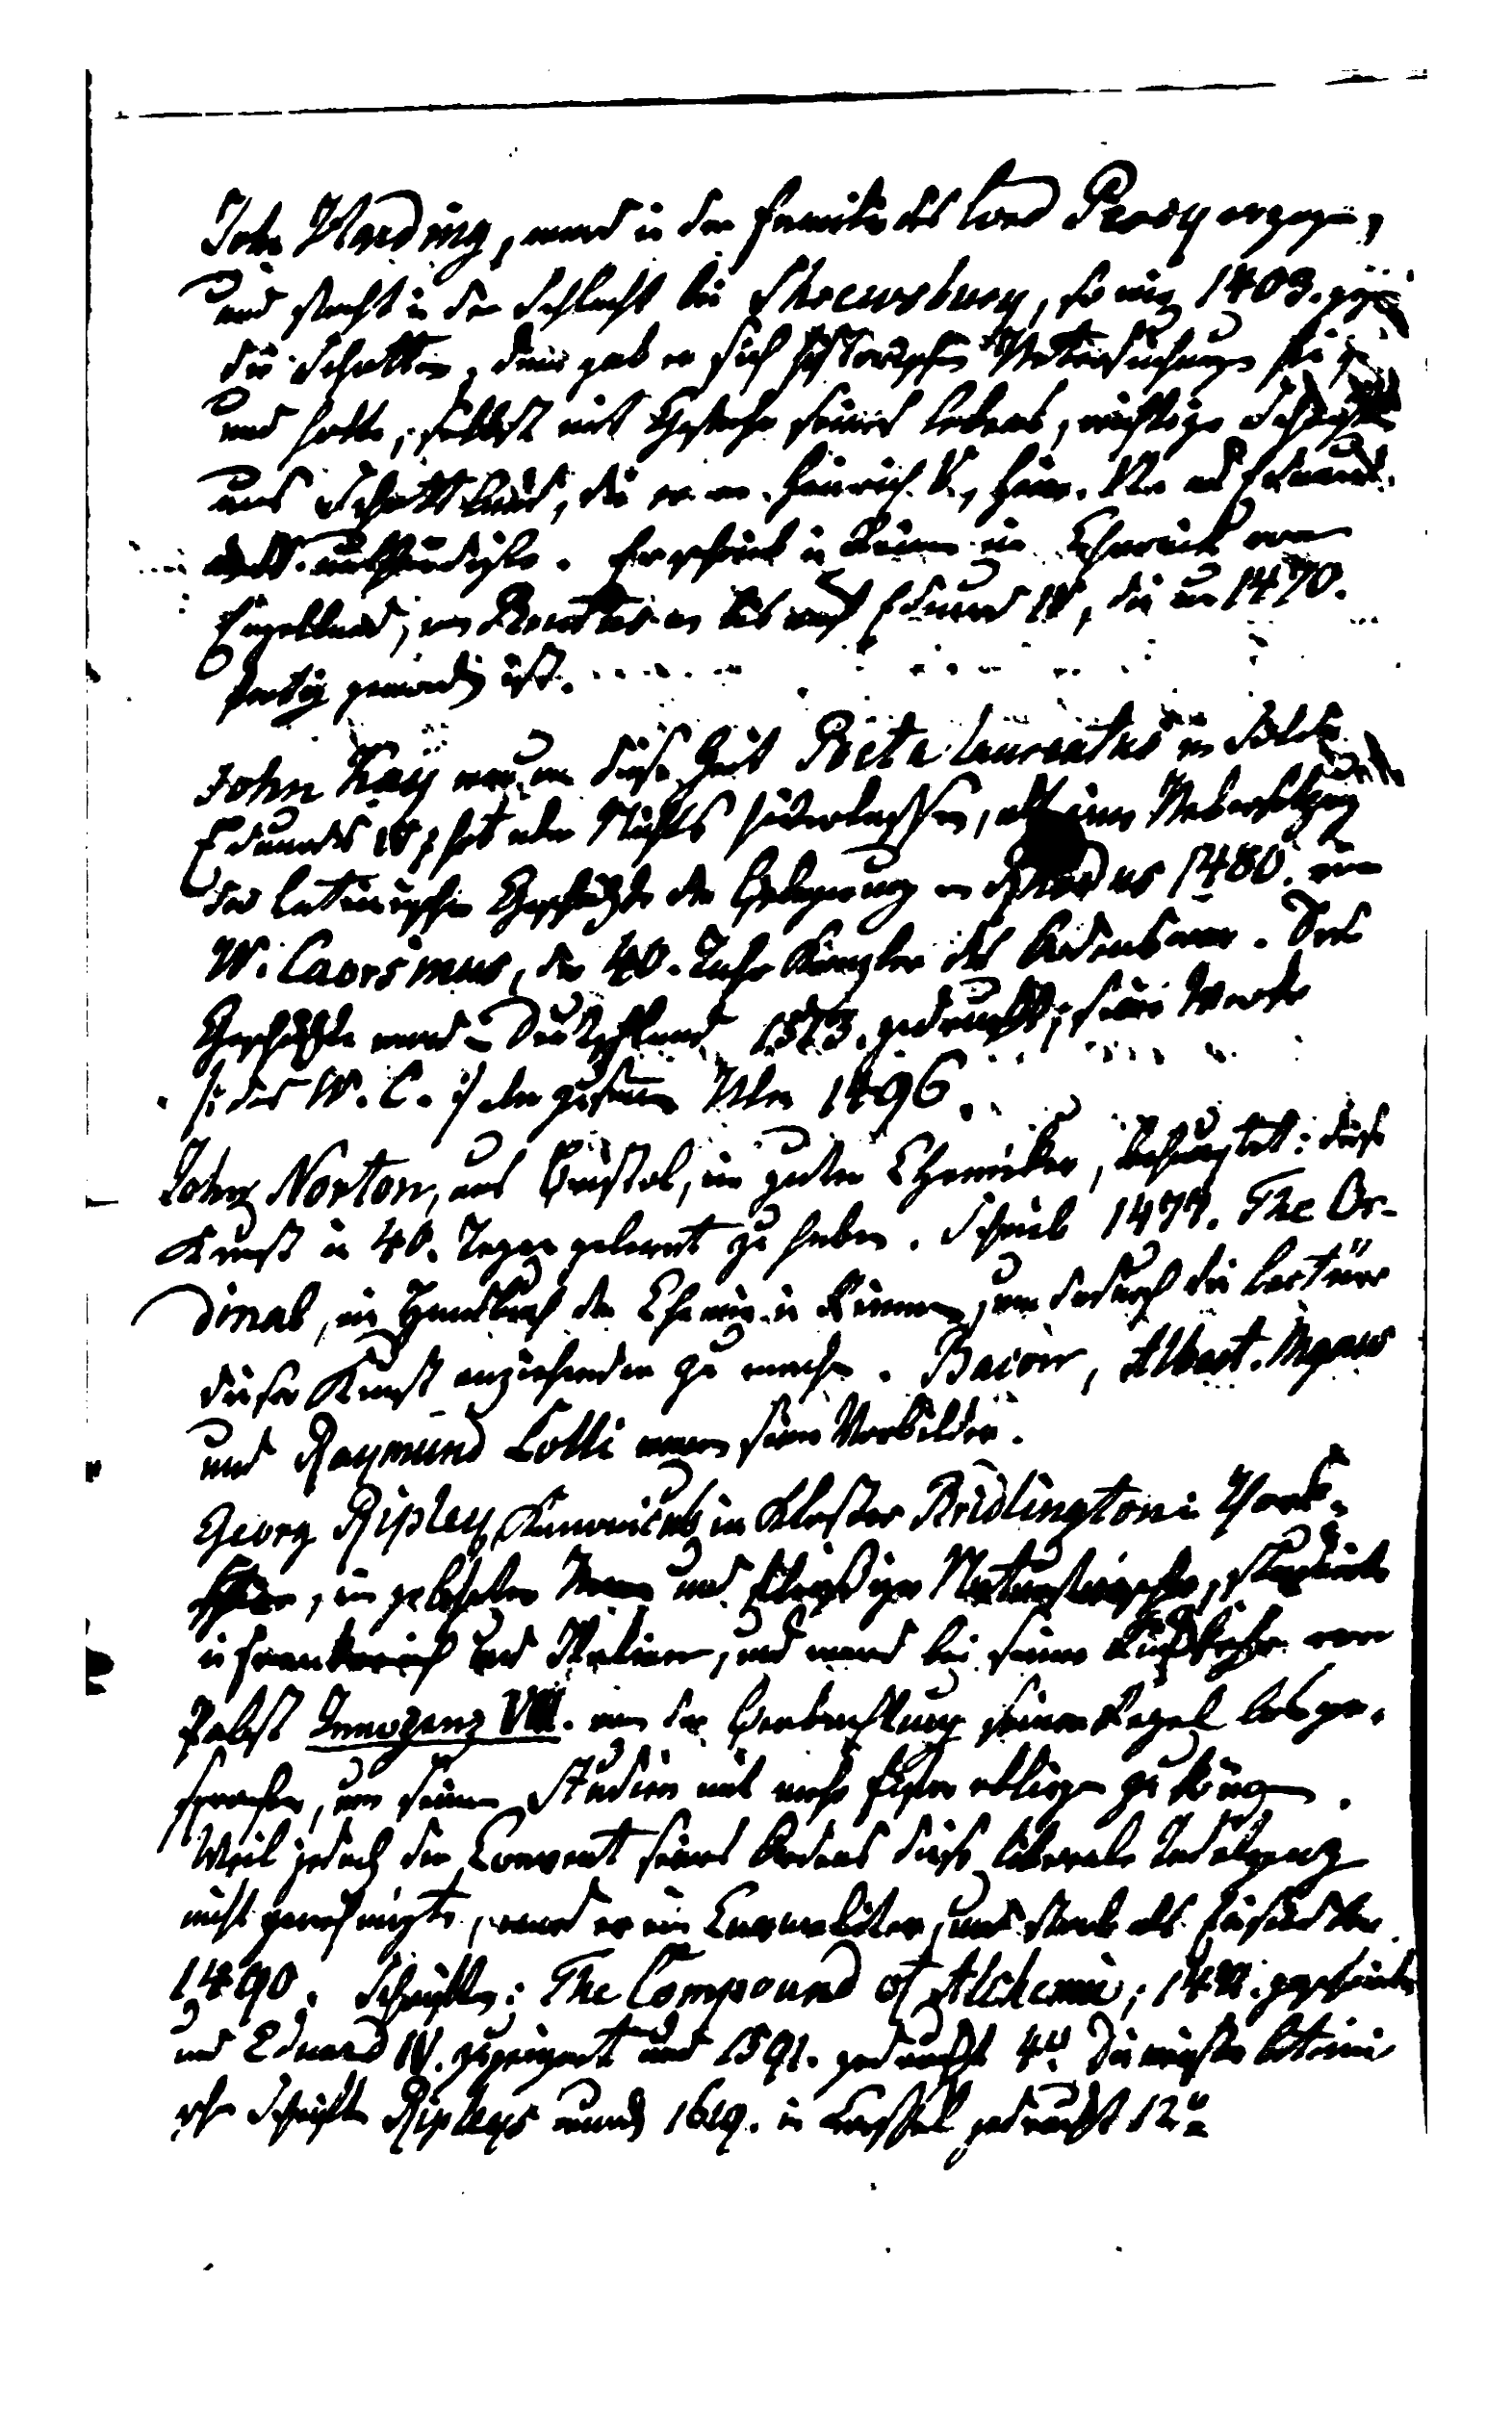 John Harding, ward in der Familie des Lord Percy erzogen,
und focht in der Schlacht bei Shrewsbury, so wie 1403. gegen
die Schotten, dann gab er sich historischen Untersuchungen hin
und holte, selbst mit Gefahr seines Lebens, wichtige Schriften
aus Schottland, die er an Heinrich V., Hein. VI. und Eduard
IV. aushändigte. Er schrieb in Reimen eine Chronik von
Engelland, von Brutus an bis auf Eduard IV, die um 1470.
fertig geworden ist.
John Kay war um diese Zeit Poeta laureatus im Solde
Eduards IV, hat aber Nichts hinterlassen, als eine Uebersetzung
der lateinischen Geschichte der Belagerung von Rhodus 1480. von
W. Caorsinus, der 40. Jahre Kanzler des Ordens war. Das
Geschichte ward in Deutschland 1513. gedruckt; seine Werke
/: des W. C. :/ aber zusammen Ulm 1496.
John Norton, aus Bristol, ein guter Chemiker, behauptet: diese
Kunst in 40. Tagen gelernt zu haben. Schrieb 1477. The Or-
dinal, ein Handbuch der Chemie in Reimen, um dadurch die Lectüre
dieser Kunst anziehender zu machen. Bacon, Albert. Magnus
und Raymund Lolli waren seine Vorbilder.
Georg Ripley, Kanonicus im Kloster Bridlington in York-
shire, ein gelehrter Mann und fleißiger Naturforscher, studirte
in Frankreich und Italien, und ward bei seiner Rückkehr von
Pabst Innozenz VIII. von der Beobachtung seiner Regel losge-
sprochen, um seinen Studien mit mehr Eifer obliegen zu können.
Weil jedoch der Convent seines Ordens diese liberale Indulgenz
nicht genehmigte, ward er ein Carmeliter, und starb als Einsiedler
1490. Schriften: The Compound of Alchemie; 1471. geschrieben
und Eduard IV. zugeeignet und 1591. gedruckt 4º. Die meisten lateini
schen Schriften Ripleys wurden 1619. in Cassel gedruckt 12º